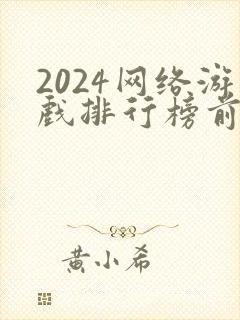 2024网络游
戏排行榜前
黄小希